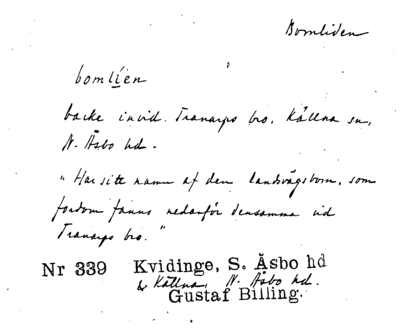 Bomliden
bomlíen
backe invid Tranarps bro, Källna sn,
N. Åsbo hd.
"Har sitt namn af den landsvägsbom, som
fordom fanns nedanför densamma vid
Tranarps bro."
Nr 339 Kvidinge, S. Åsbo hd
& Källna, N. Åsbo hd.
Gustaf Billing.